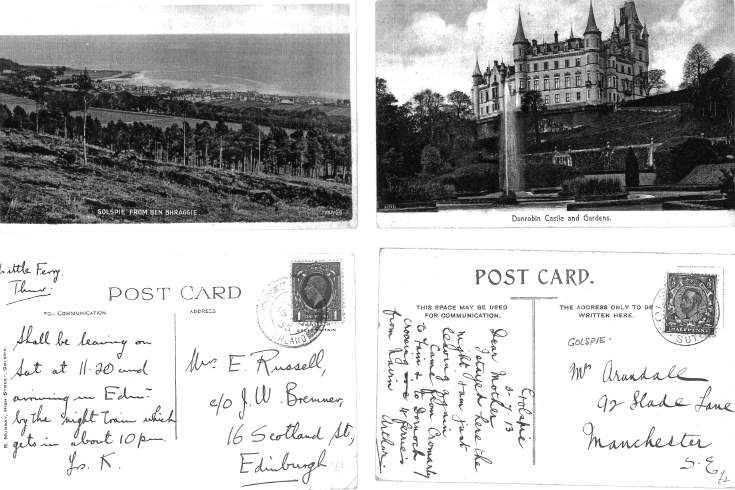 GOLSPIE FROM BEN BHRAGGIE.
Dunrobin Castle and Gardens.
Little Ferry.
Thur.
POST CARD
FOR COMMUNICATION
ADDRESS
Shall be leaving on
Sat at 11.20 and
arriving in Edin
by the night train which
gets in about 10 pm.
Yrs. K.
R. MURRAY, HIGH STREET, GOLSPIE.
1 1
Mrs E. Russell,
c/o J. W. Bremner,
16 Scotland St,
Edinburgh
POST CARD.
THIS SPACE MAY BE USED
FOR COMMUNICATION.
THE ADDRESS ONLY TO BE
WRITTEN HERE.
Golspie
3-7-13
Dear Mother
I stayed here the
night & am just
leaving again.
Came from Cromarty
to Tain & to Dornoch
crossing 4 ferries
from Nairn
Arthur
HALFPENNY
GOLSPIE.
Mrs Arundall
92 Slade Lane
Manchester
S.E.